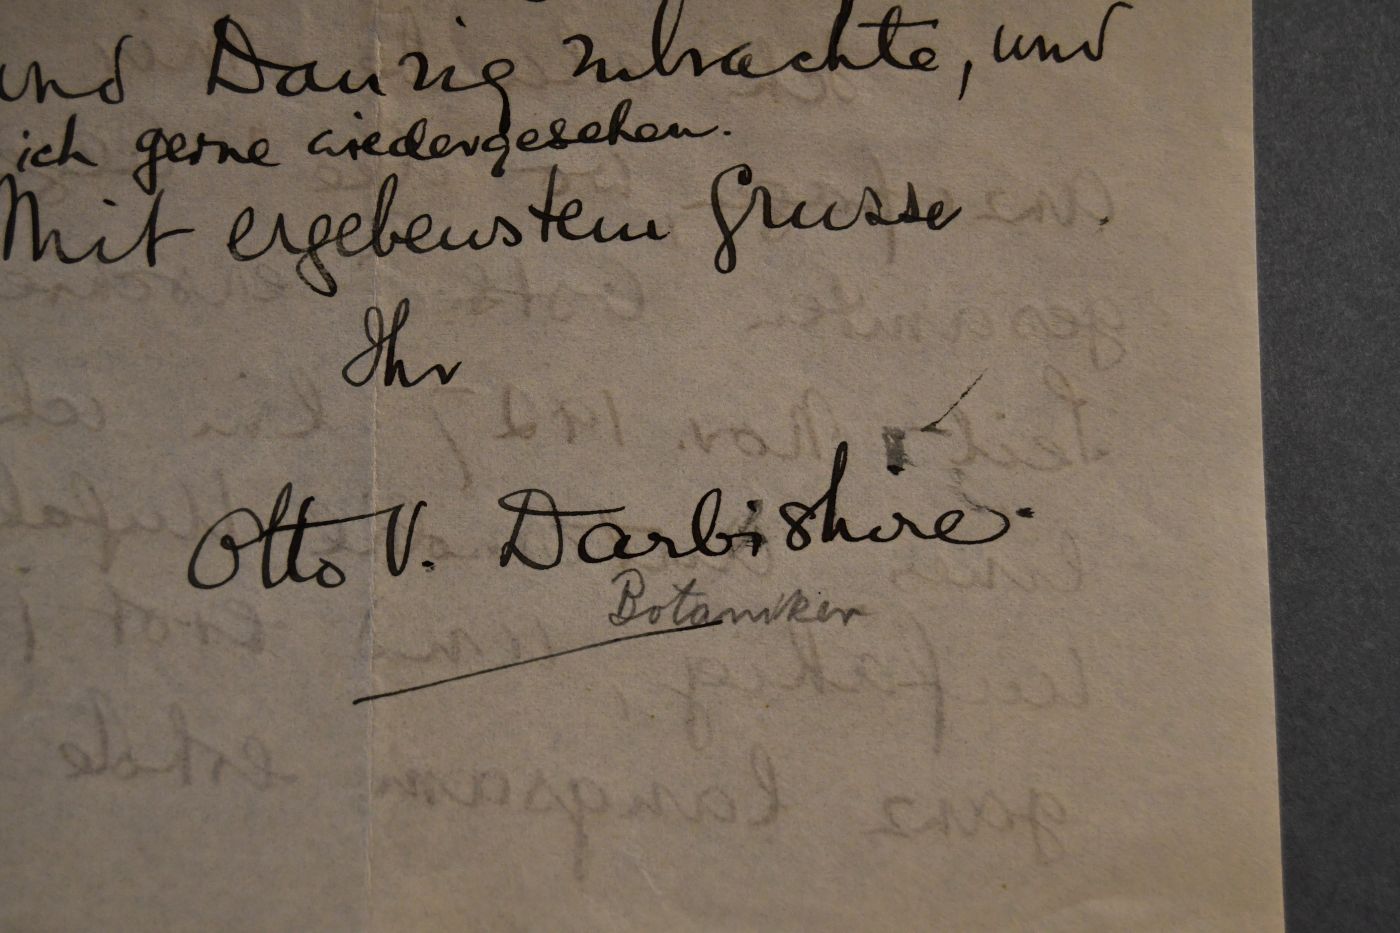 und Danzig zubrachte, und
ich gerne wiedergesehen.
Mit ergebenstem Grusse
Ihr
Otto V. Darbishire.
Botaniker